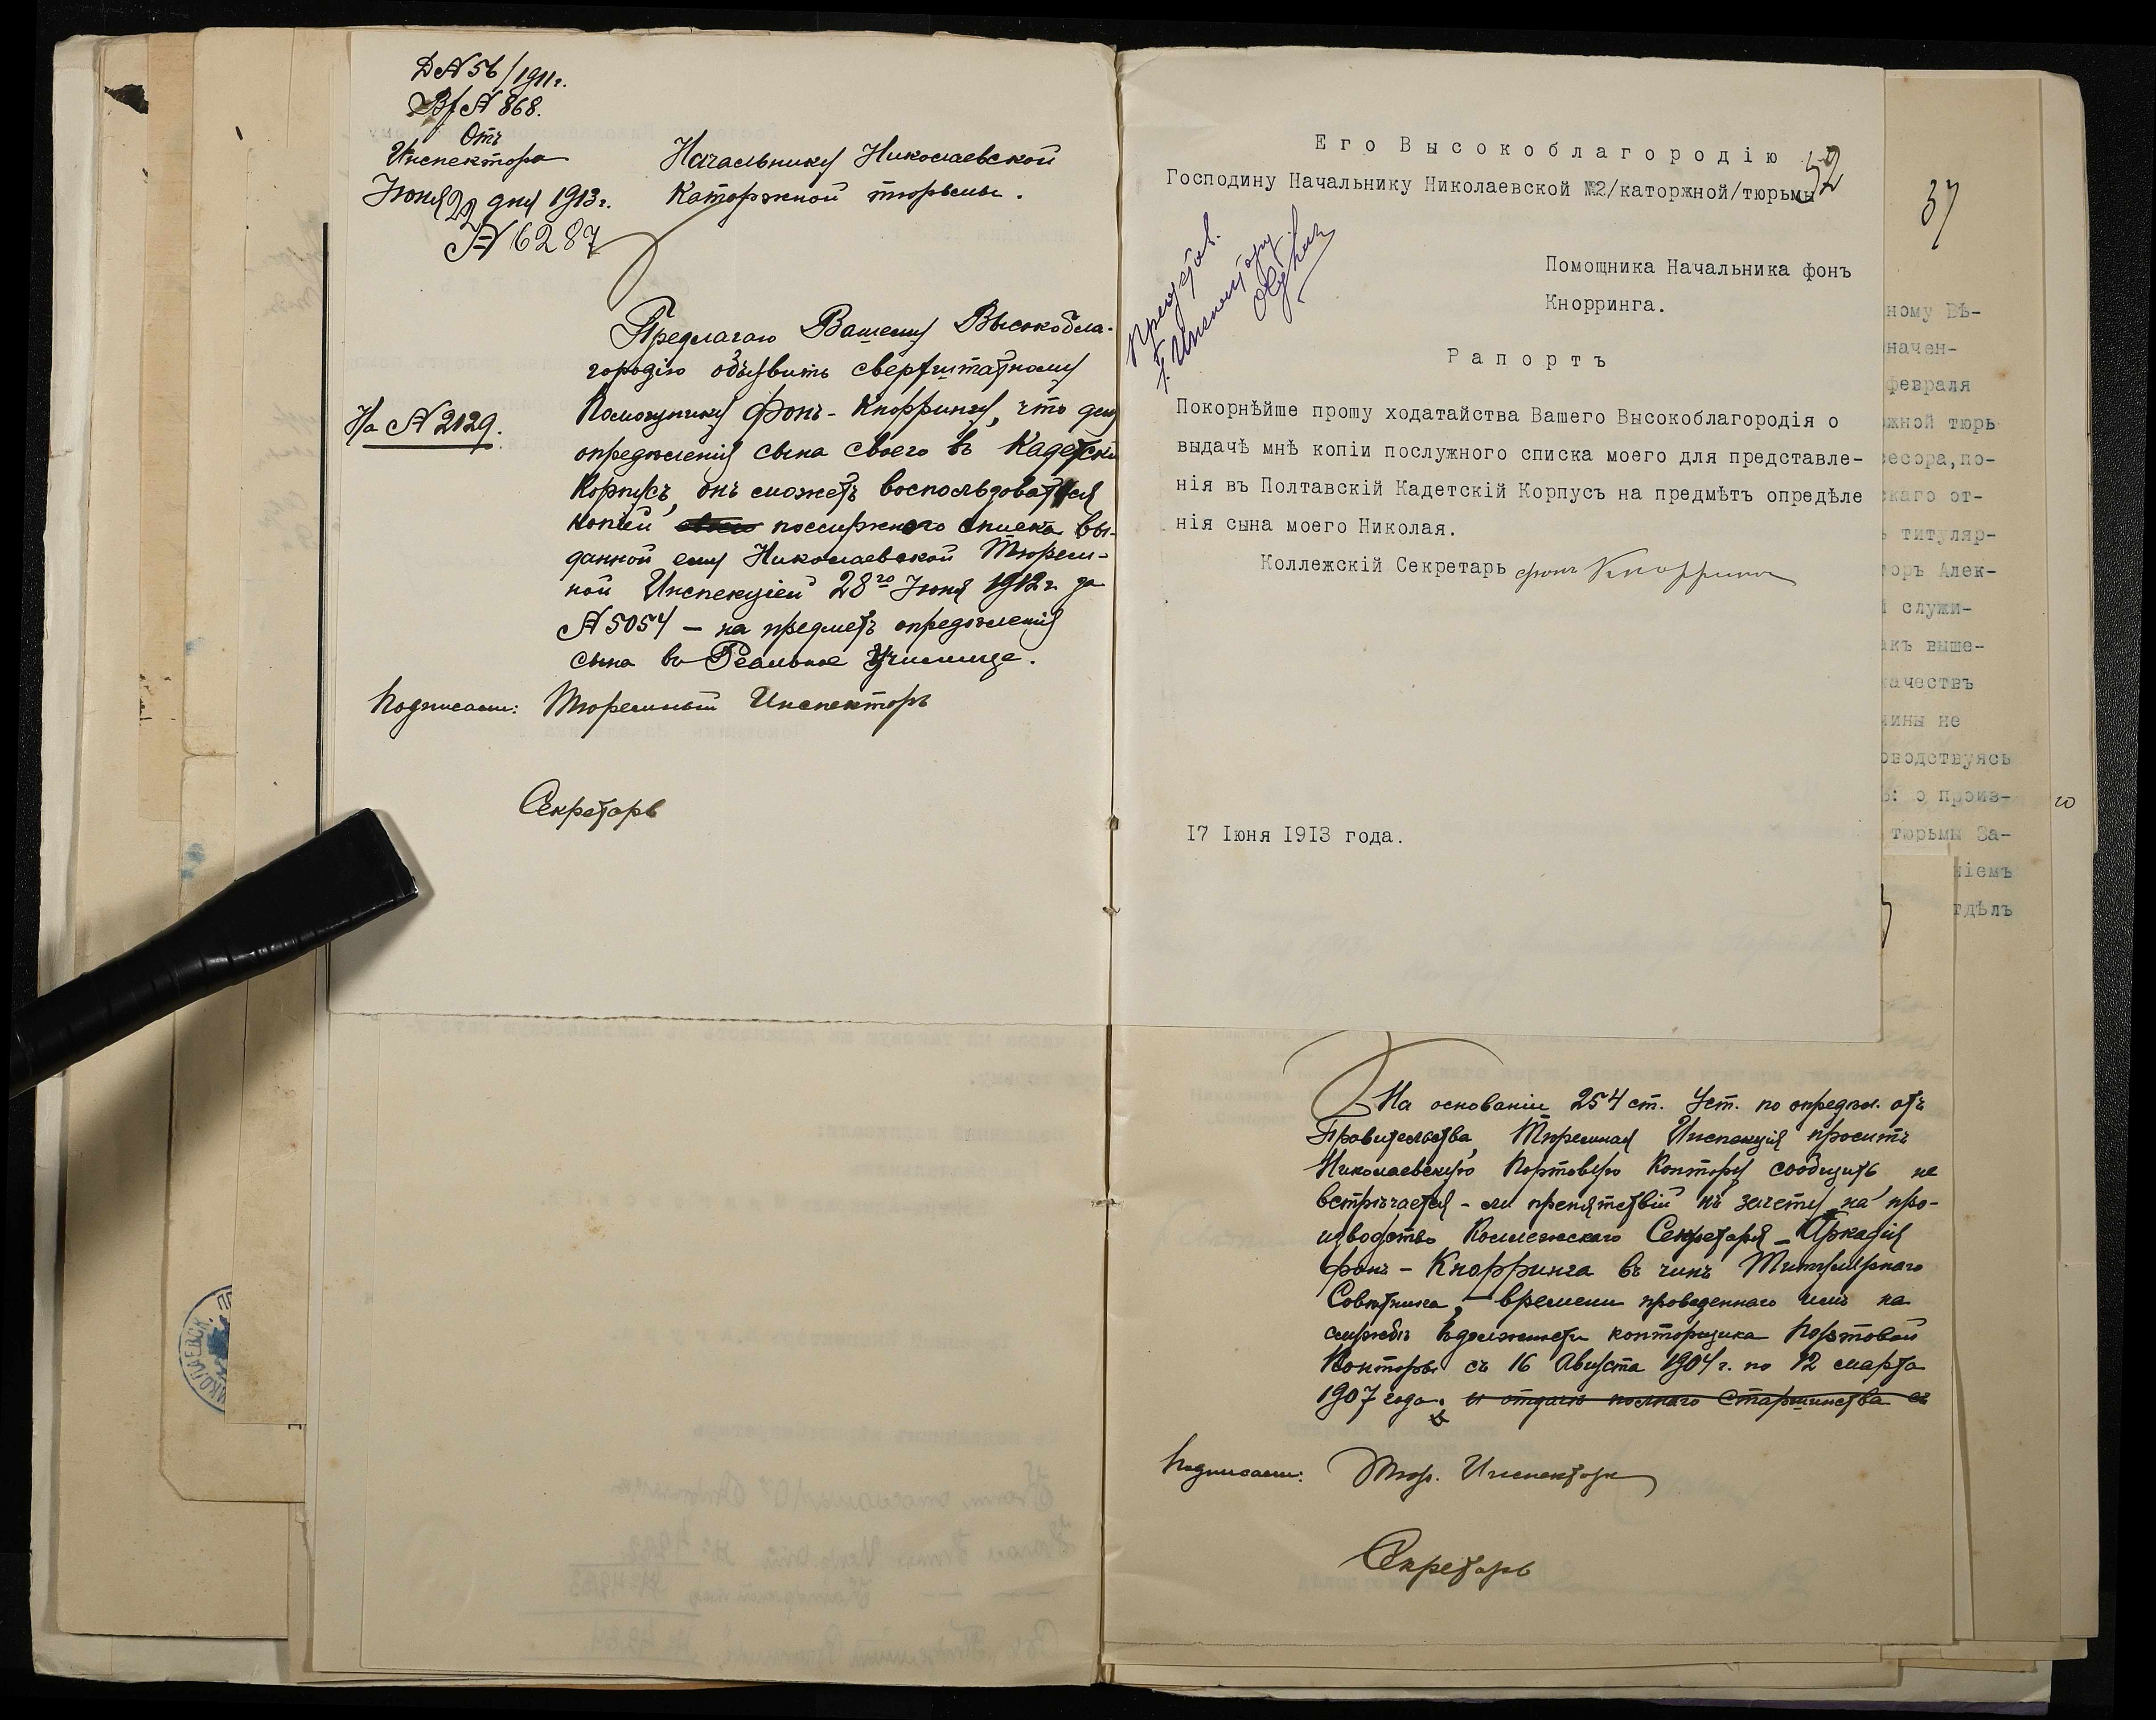 Д № 56/1911 г.
Вх № 868.
Отъ
Инспектора
Іюня 22 дня 1913 г.
№ 6287
Начальнику Николаевской
Каторжной тюрьмы.
Предлагаю Вашему Высокобла-
городію объявить сверхштатному
На № 2129.
Помощнику фонъ-Кноррингу, что для
опредѣленія сына своего въ Кадетскій
Корпусъ, онъ можетъ воспользоваться
копіей послужного списка вы-
данной ему Николаевской Тюрем-
ной Инспекціей 28го Іюня 1912 г. за
№ 5054 — на предметъ опредѣленія
сына въ Реальное Училище.
Подписали: Тюремный Инспекторъ
Секретарь
52
Его Высокоблагородію
Господину Начальнику Николаевской №2/каторжной/тюрьмы
Помощника Начальника фонъ
Кнорринга.
Рапортъ
Покорнѣйше прошу ходатайства Вашего Высокоблагородія о
выдачѣ мнѣ копіи послужного списка моего для представле-
нія въ Полтавскій Кадетскій Корпусъ на предмѣтъ опредѣле
нія сына моего Николая.
Коллежскій Секретарь фонъ Кноррингъ
17 Іюня 1913 года.
На основаніи 254 ст. Уст. по опредѣл. отъ
Правительства, Тюремная Инспекція проситъ
Николаевскую Портовую Контору сообщить, не
встрѣчается-ли препятствій къ зачету на про-
изводство Коллежскаго Секретаря Аркадія
фонъ-Кнорринга въ чинъ Титулярнаго
Совѣтника, времени проведеннаго имъ на
службѣ въ должности конторщика Портовой
Конторы съ 16 Августа 1904 г. по 12 марта
1907 года. и отдачѣ полнаго старшинства съ
Подписали: Тюр. Инспекторъ
Секретарь
37
ному Вѣ-
начен-
февраля
жной тюрь
сесора, по-
скаго от-
титуляр-
торъ Алек-
служи-
акъ выше-
качествъ
чины не
оводствуясь
о произ-
тюрьмы За-
ніемъ
тдѣлъ